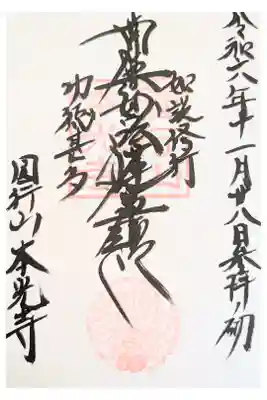 令和六年十一月廿八日参拝ノ砌
如説修行
南無妙法蓮華経
功徳甚多
国行山本光寺